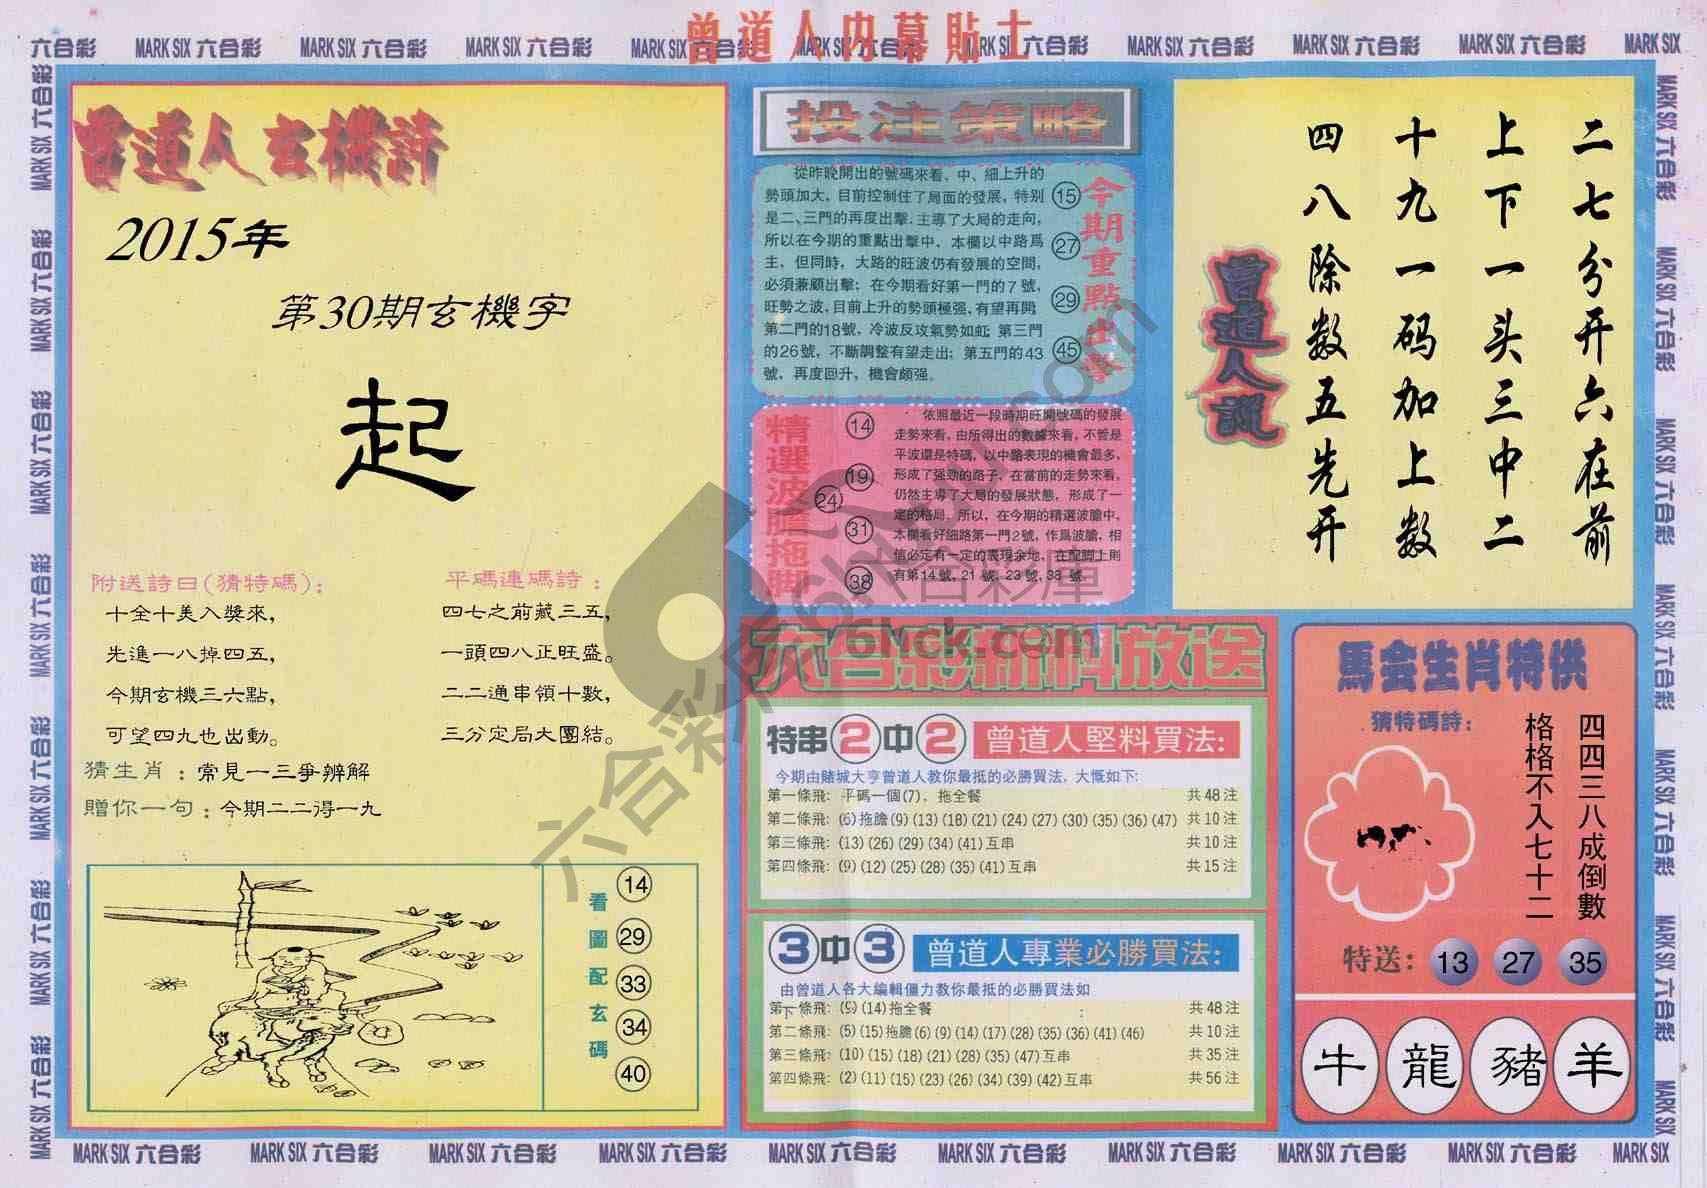 曾道人内幕貼士
六合彩 MARK SIX 六合彩 MARK SIX 六合彩 MARK SIX 六合彩 MARK SIX 六合彩 MARK SIX 六合彩 MARK SIX 六合彩 MARK SIX 六合彩 MARK SIX 六合彩 MARK SIX 六合彩 MARK SIX
曾道人玄機詩
2015年
第30期玄機字
起
附送詩曰(猜特碼)：
十全十美入獎來，
先進一八掉四五，
今期玄機三六點，
可望四九也出動。
平碼連碼詩：
四七之前藏三五，
一頭四八正旺盛。
二二通串領十數，
三分定局大團結。
猜生肖：常見一三爭辨解
贈你一句：今期二二得一九
看圖配玄碼
14
29
33
34
40
投注策略
從昨晚開出的號碼來看、中、細上升的
勢頭加大，目前控制住了局面的發展，特别
是二、三門的再度出擊，主導了大局的走向，
所以在今期的重點出擊中，本欄以中路爲
主，但同時，大路的旺波仍有發展的空間，
必須兼顧出擊；在今期看好第一門的7號，
旺勢之波，目前上升的勢頭極强，有望再開，
第二門的18號，冷波反攻氣勢如虹；第三門
的26號，不斷調整有望走出；第五門的43
號，再度回升，機會頗强。
今期重點出擊
15
27
29
45
精選波膽拖脚
14
19
24
31
38
依照最近一段時期旺開號碼的發展
走勢來看，由所得出的數據來看，不管是
平波還是特碼，以中路表現的機會最多，
形成了强勁的路子，在當前的走勢來看，
仍然主導了大局的發展狀態，形成了一
定的格局，所以，在今期的精選波膽中，
本欄看好細路第一門2號，作爲波膽，相
信必定有一定的表現余地，在配脚上則
有第14號，21號，23號，38號
六合彩新料放送
特串2中2 曾道人堅料買法：
今期由賭城大亨曾道人教你最抵的必勝買法，大慨如下：
第一條飛：平碼一個(7)，拖全餐 共48注
第二條飛：(6)拖膽(9)(13)(18)(21)(24)(27)(30)(35)(36)(47) 共10注
第三條飛：(13)(26)(29)(34)(41)互串 共10注
第四條飛：(9)(12)(25)(28)(35)(41)互串 共15注
3中3 曾道人專業必勝買法：
由曾道人各大編輯僵力教你最抵的必勝買法如下：
第一條飛：(9)(14)拖全餐 共48注
第二條飛：(5)(15)拖膽(6)(9)(14)(17)(28)(35)(36)(41)(46) 共10注
第三條飛：(10)(15)(18)(21)(28)(35)(47)互串 共35注
第四條飛：(2)(11)(15)(23)(26)(34)(39)(42)互串 共56注
二七分开六在前
上下一头三中二
十九一码加上数
四八除数五先开
曾道人説
馬会生肖特供
猜特碼詩：
四四三八成倒數
格格不入七十二
特送：13 27 35
牛 龍 豬 羊
六合彩庫
6hck.com
MARK SIX 六合彩 MARK SIX 六合彩 MARK SIX 六合彩 MARK SIX 六合彩 MARK SIX 六合彩 MARK SIX 六合彩 MARK SIX 六合彩 MARK SIX 六合彩 MARK SIX 六合彩 MARK SIX